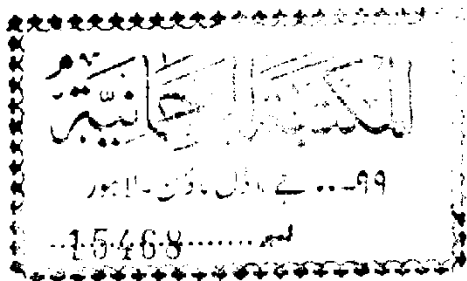 المکتبۃ الرحمانیۃ
۹۹۔۔۔ جے ماڈل ٹاؤن ۔ لاہور
نمبر 15468